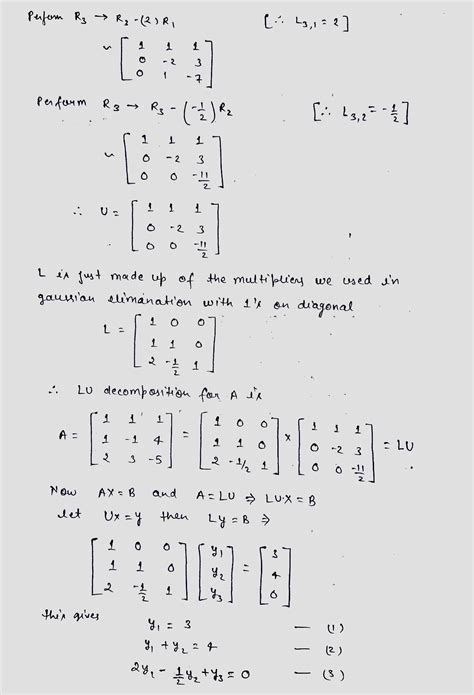 Perform R3 → R3 - (2) R1 [∴ L3,1 = 2]
~ [ 1 1 1
0 -2 3
0 1 -7 ]
Perform R3 → R3 - (-1/2) R2 [∴ L3,2 = -1/2]
~ [ 1 1 1
0 -2 3
0 0 -11/2 ]
∴ U = [ 1 1 1
0 -2 3
0 0 -11/2 ]
L is just made up of the multipliers we used in
gaussian elimanation with 1's on diagonal
L = [ 1 0 0
1 1 0
2 -1/2 1 ]
∴ LU decomposition for A is
A = [ 1 1 1
1 -1 4
2 3 -5 ] = [ 1 0 0
1 1 0
2 -1/2 1 ] × [ 1 1 1
0 -2 3
0 0 -11/2 ] = LU
Now AX = B and A = LU ⇒ LU·X = B
let UX = y then Ly = B ⇒
[ 1 0 0
1 1 0
2 -1/2 1 ] [ y1
y2
y3 ] = [ 3
4
0 ]
this gives
y1 = 3 — (1)
y1 + y2 = 4 — (2)
2y1 - 1/2 y2 + y3 = 0 — (3)